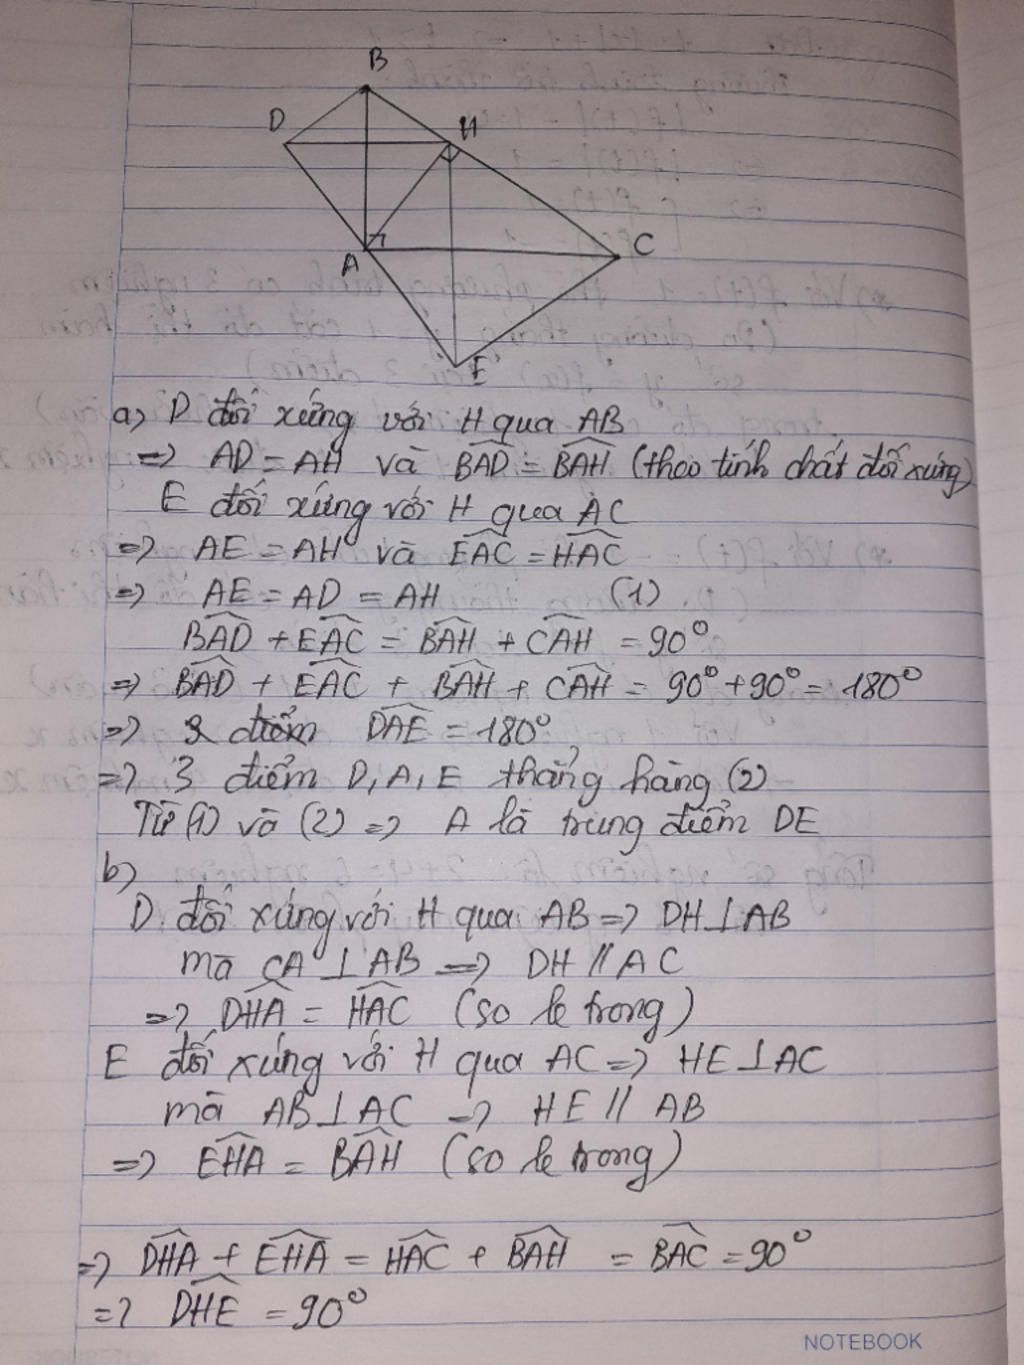 B
D
H
A
C
E
a) D đối xứng với H qua AB
=> AD = AH và BAD = BAH (theo tính chất đối xứng)
E đối xứng với H qua AC
=> AE = AH và EAC = HAC
=> AE = AD = AH (1)
BAD + EAC = BAH + CAH = 90°
=> BAD + EAC + BAH + CAH = 90° + 90° = 180°
=> điểm DAE = 180°
=> 3 điểm D, A, E thẳng hàng (2)
Từ (1) và (2) => A là trung điểm DE
b)
D đối xứng với H qua AB => DH ⊥ AB
mà CA ⊥ AB => DH // AC
=> DHA = HAC (so le trong)
E đối xứng với H qua AC => HE ⊥ AC
mà AB ⊥ AC => HE // AB
=> EHA = BAH (so le trong)
=> DHA + EHA = HAC + BAH = BAC = 90°
=> DHE = 90°
NOTEBOOK